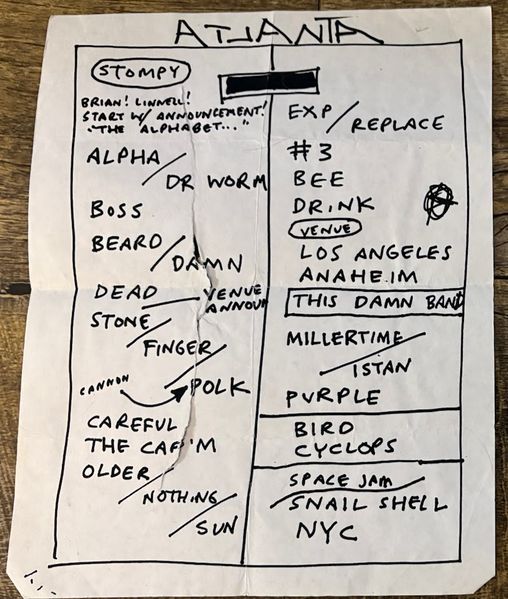 ATLANTA
STOMPY
BRIAN! LINNELL!
START W/ ANNOUNCEMENT!
"THE ALPHABET..."
ALPHA /
DR WORM
BOSS
BEARD /
DAMN
DEAD
VENUE
ANNOUN
STONE /
FINGER /
CANNON
POLK
CAREFUL
THE CAP'M
OLDER /
NOTHING /
SUN
EXP /
REPLACE
#3
BEE
DRINK
VENUE
LOS ANGELES
ANAHEIM
THIS DAMN BAND
MILLERTIME /
ISTAN
PURPLE
BIRD
CYCLOPS
SPACE JAM
SNAIL SHELL
NYC